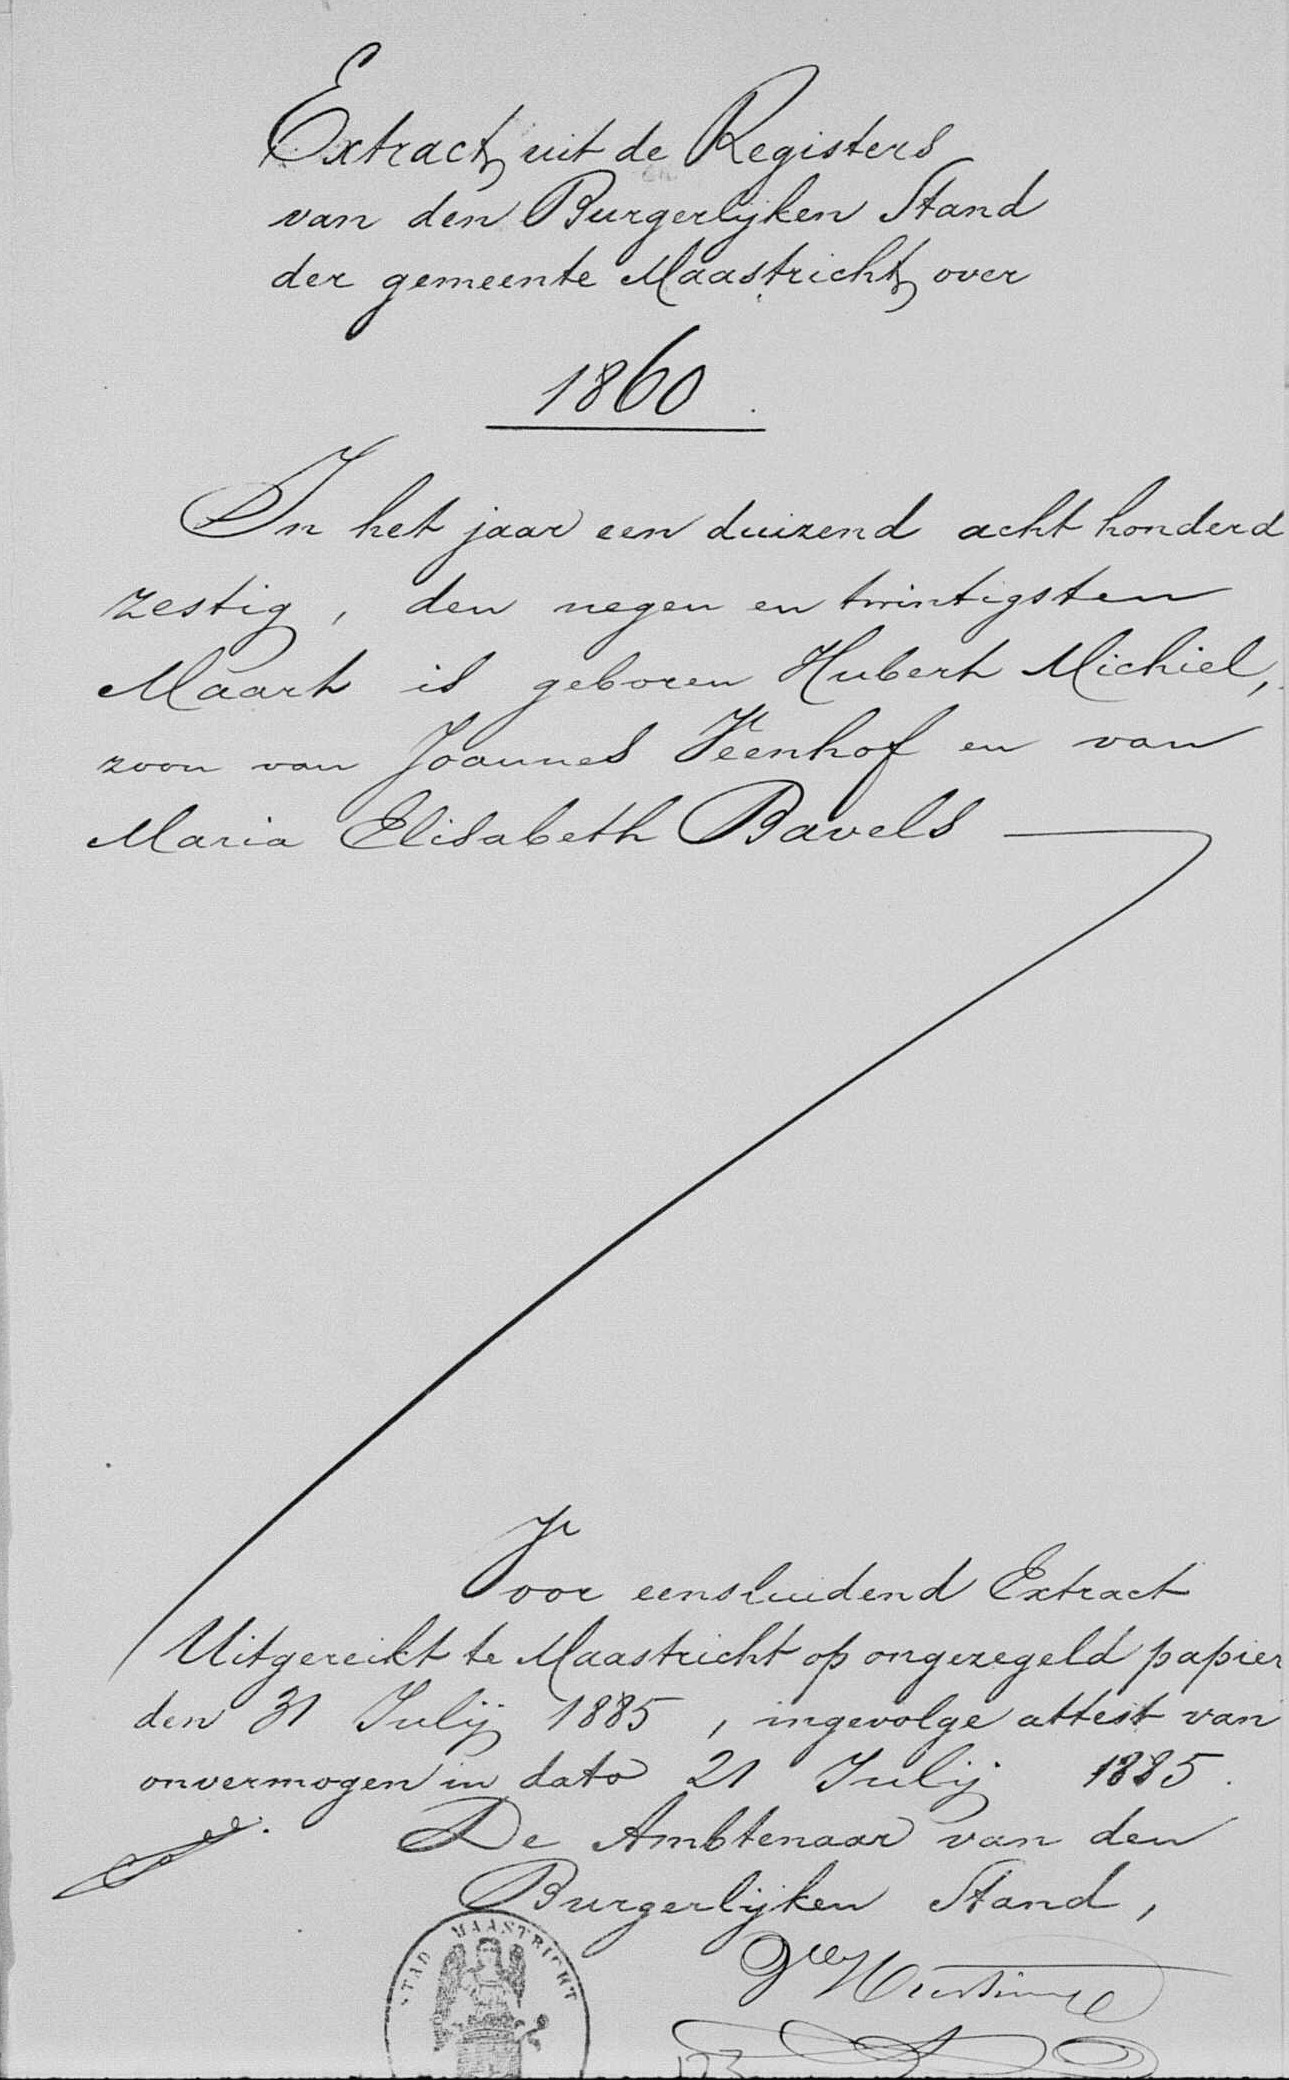 Extract uit de Registers
van den Burgerlijken Stand
der gemeente Maastricht over
1860.
In het jaar een duizend acht honderd
zestig, den negen en twintigsten
Maart is geboren Hubert Michiel,
zoon van Joannes Veenhof en van
Maria Elisabeth Bavels
Voor eensluidend Extract
Uitgereikt te Maastricht op ongezegeld papier
den 31 Julij 1885, ingevolge attest van
onvermogen in dato 21 Julij 1885.
De Ambtenaar van den
Burgerlijken Stand,
STAD MAASTRICHT